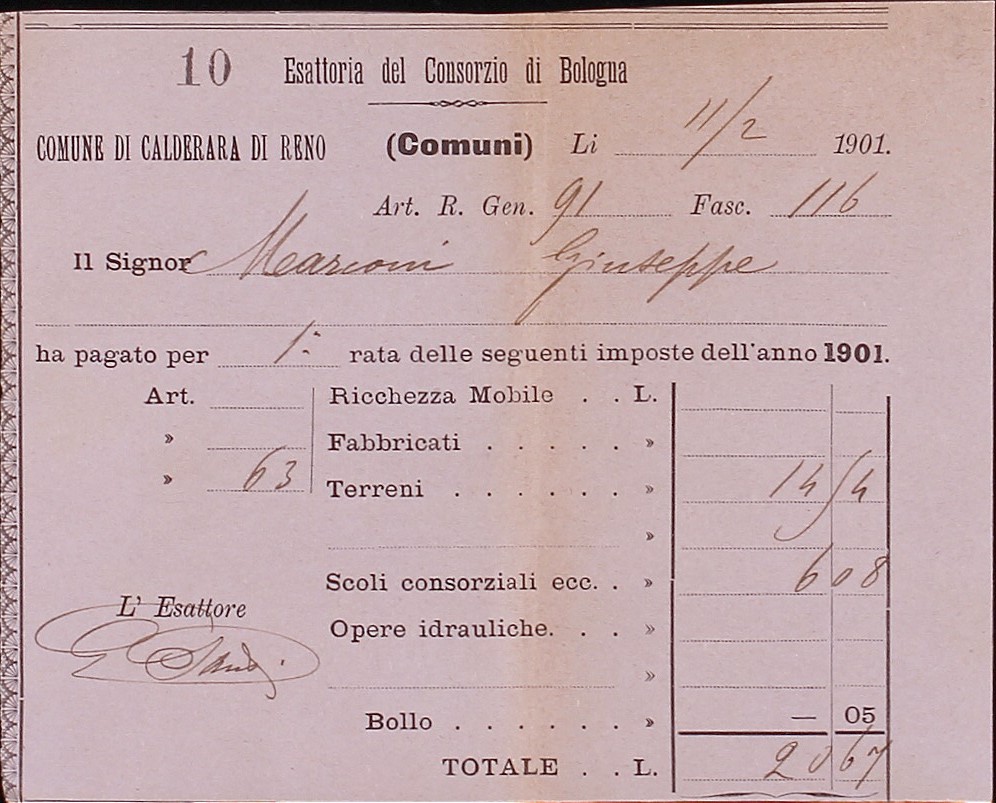 10 Esattoria del Consorzio di Bologna
COMUNE DI CALDERARA DI RENO (Comuni) Li 11/2 1901.
Art. R. Gen. 91 Fasc. 116
Il Signor Marconi Giuseppe
ha pagato per 1a rata delle seguenti imposte dell'anno 1901.
Art. Ricchezza Mobile . . L.
» Fabbricati . . . . . »
» 63 Terreni . . . . . . » 14 54
»
Scoli consorziali ecc. . » 6 08
L' Esattore
Opere idrauliche. . . »
»
Bollo . . . . . . » — 05
TOTALE . . L. 20 67